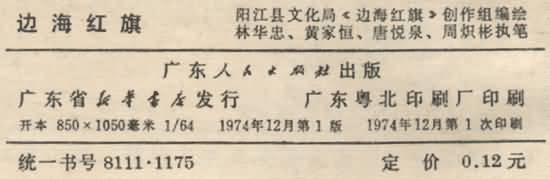 边海红旗
阳江县文化局《边海红旗》创作组编绘
林华忠、黄家恒、唐悦泉、周炽彬执笔
广东人民出版社出版
广东省新华书店发行 广东粤北印刷厂印刷
开本 850×1050毫米 1/64 1974年12月第1版 1974年12月第1次印刷
统一书号 8111·1175 定价 0.12元